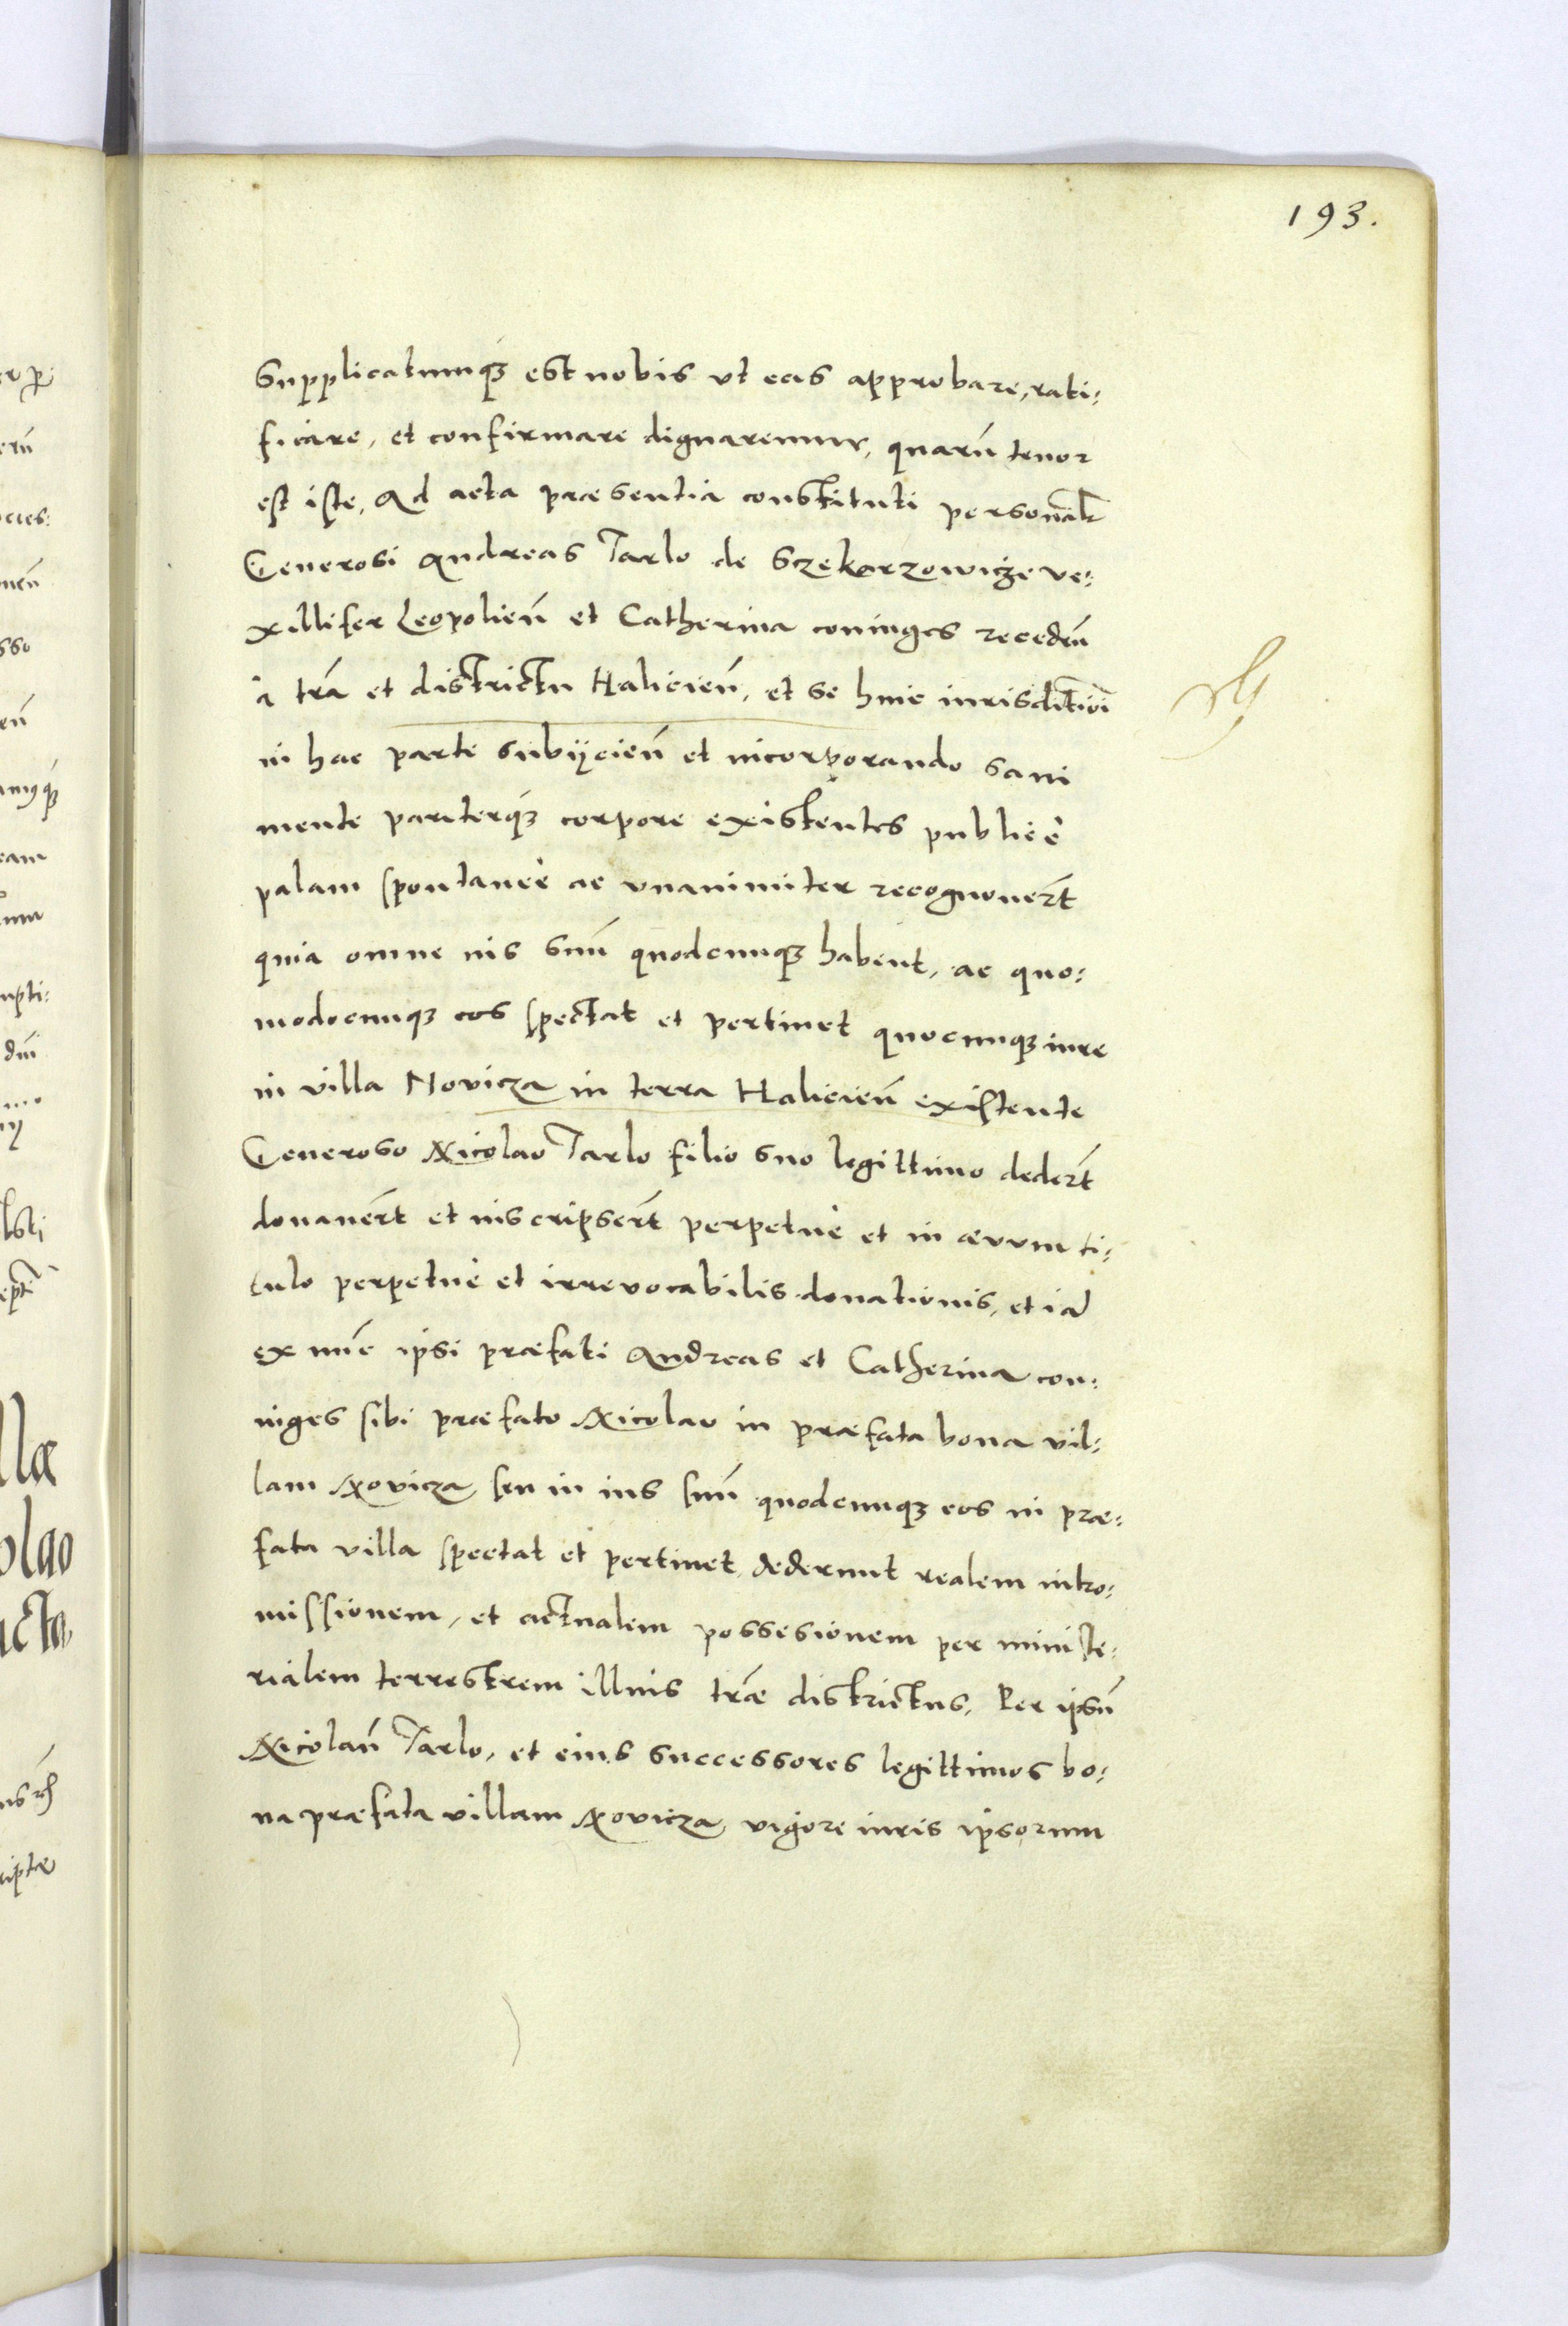 193.
Supplicatumq₃ est nobis vt eas approbare, rati:
ficare, et confirmare dignaremur, quarū tenor
est iste, Ad acta præsentia constituti personalr
Generosi Andreas Tarlo de Sczekarzowicze ve:
xillifer Leopolien̄ et Catherina coniuges recedēn
à trā et districtu Halicien̄, et se huic iurisdictioni
in hac parte subijcien̄ et incorporando sani
mente pariterq₃ corpore existentes publicè
palam spontaneè ac vnanimiter recognouer̄t
quia omne ius suū quodcunq₃ habent, ac quo:
modocunq₃ eos spectat et pertinet quocunq₃ iure
in villa Novicza in terra Halicien̄ existente
Generoso Nicolao Tarlo filio suo legittimo deder̄t
donauer̄t et inscripser̄t perpetuè et in ævvm ti:
tulo perpetuè et irrevocabilis donationis, et iā
ex nūc ipsi præfati Andreas et Catherina con:
iuges sibi præfato Nicolao in præfata bona vil:
lam Novicza, seu in ius suū quodcunq₃ eos in præ:
fata villa spectat et pertinet, dederunt realem intro:
missionem, et actualem possesionem per ministe:
rialem terrestrem illius trāe districtus, Per ipsū
Nicolaū Tarlo, et eius successores legittimos bo:
na præfata villam Novicza, vigore iuris ipsorum